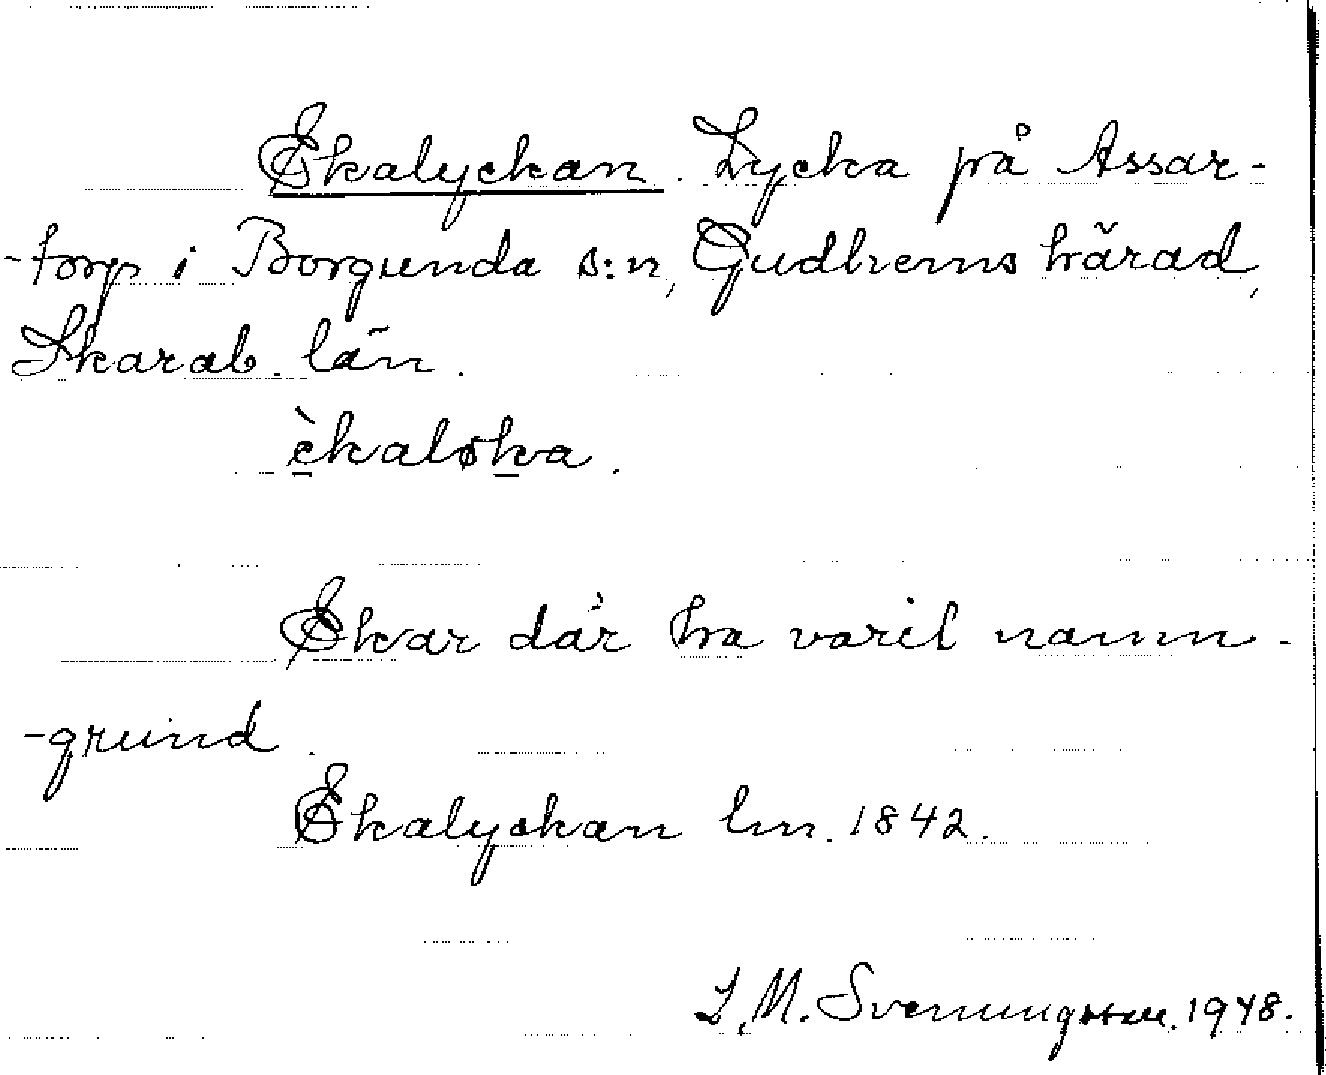 Ekalyckan. Lycka på Assar-
-torp i Borgunda s:n, Gudhems härad,
Skarab. län.
èkaløka.
Ekar där ha varit namn-
-grund.
Ekalyckan lm. 1842.
L. M. Svenungsson. 1948.